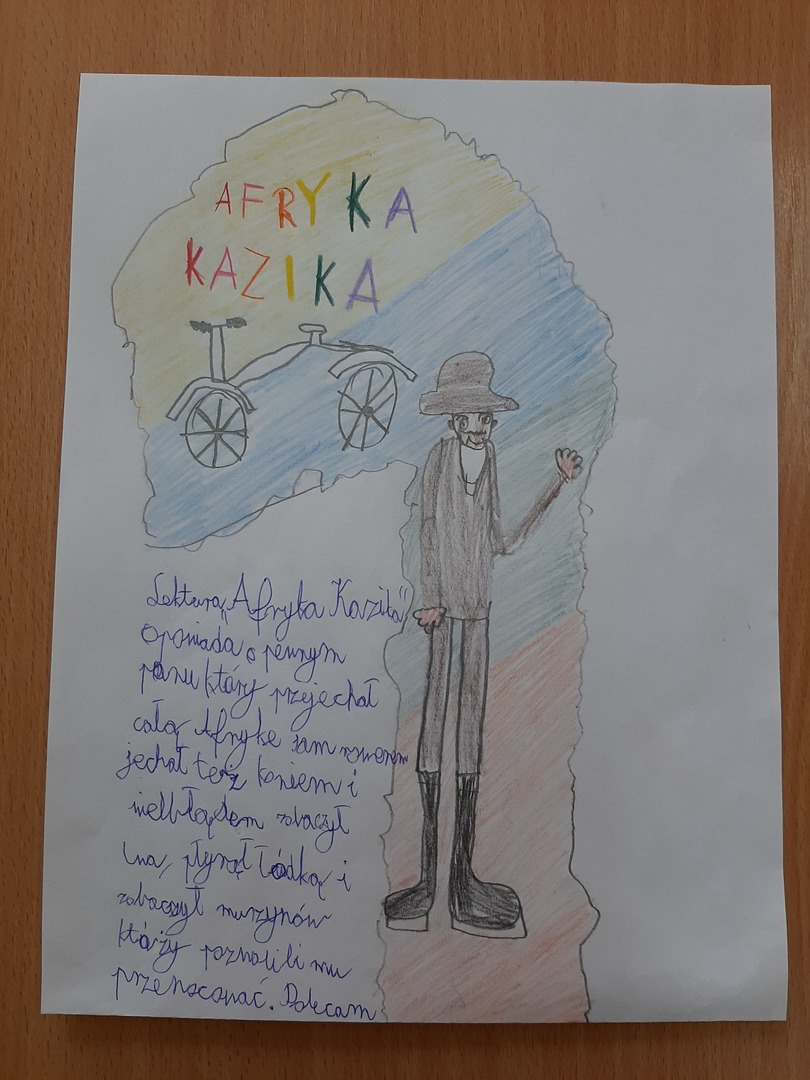 AFRYKA
KAZIKA
Lektura „Afryka Kazika"
opowiada o pewnym
panu który przejechał
całą Afrykę sam rowerem
jechał też koniem i
wielbłądem zobaczył
lwa, płynął łódką i
zobaczył murzynów
którzy pozwolili mu
przenocować. Polecam